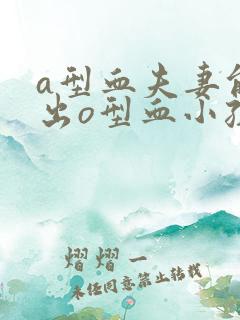 a型血夫妻能
出o型血小孩
熠熠一
未经同意禁止转载